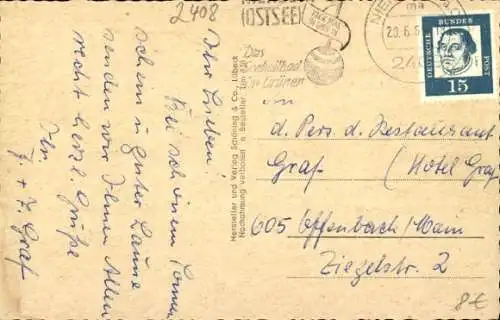 2408
(OSTSEE)
Das
Seeheilbad
im Grünen
20.6.6
DEUTSCHE BUNDESPOST
15
Ihr Lieben!
Bei schönem Sonnen
schein u guter Laune
senden wir Ihnen Allen
recht herzl. Grüße
Ihr
F. + Z. Graf
Hersteller und Verlag Schöning & Co., Lübeck
Nachahmung verboten
an
d. Pers. d. Restaurant
Graf (Hotel Graf
605 Offenbach/Main
Ziegelstr. 2
8€